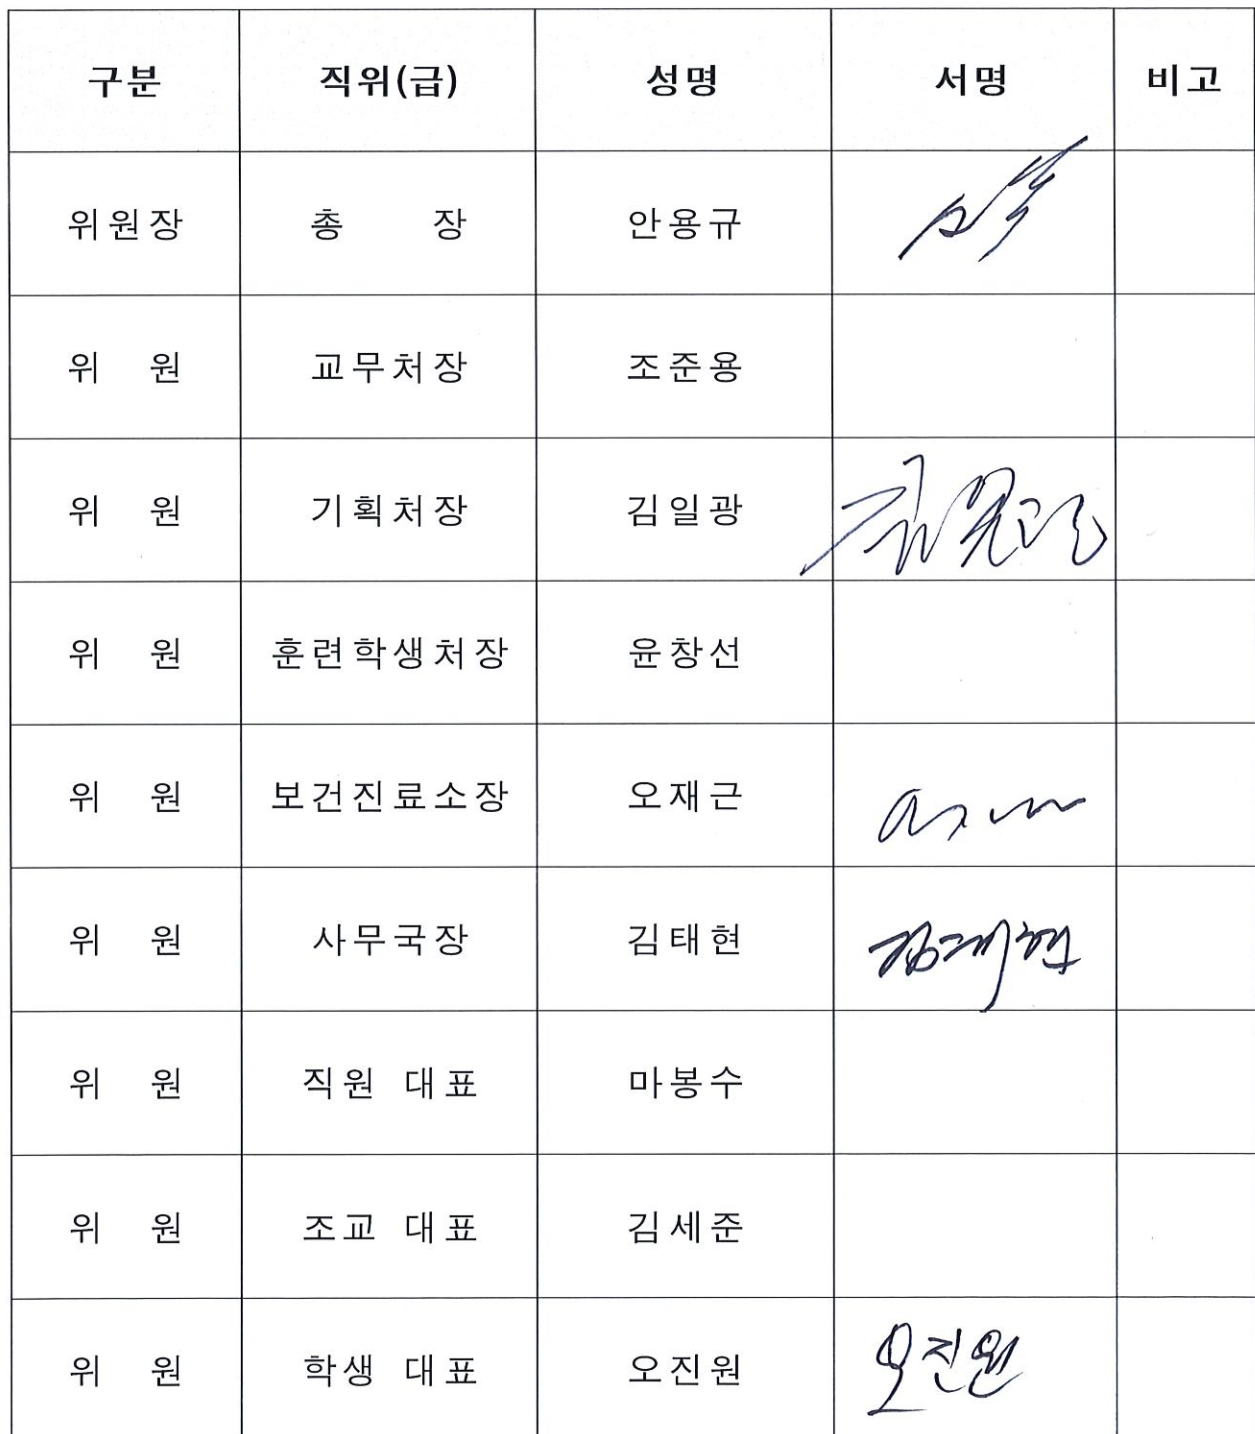 구분 직위(급) 성명 서명 비고
위원장 총 장 안용규
위 원 교무처장 조준용
위 원 기획처장 김일광
위 원 훈련학생처장 윤창선
위 원 보건진료소장 오재근
위 원 사무국장 김태현 김태현
위 원 직원 대표 마봉수
위 원 조교 대표 김세준
위 원 학생 대표 오진원 오진원